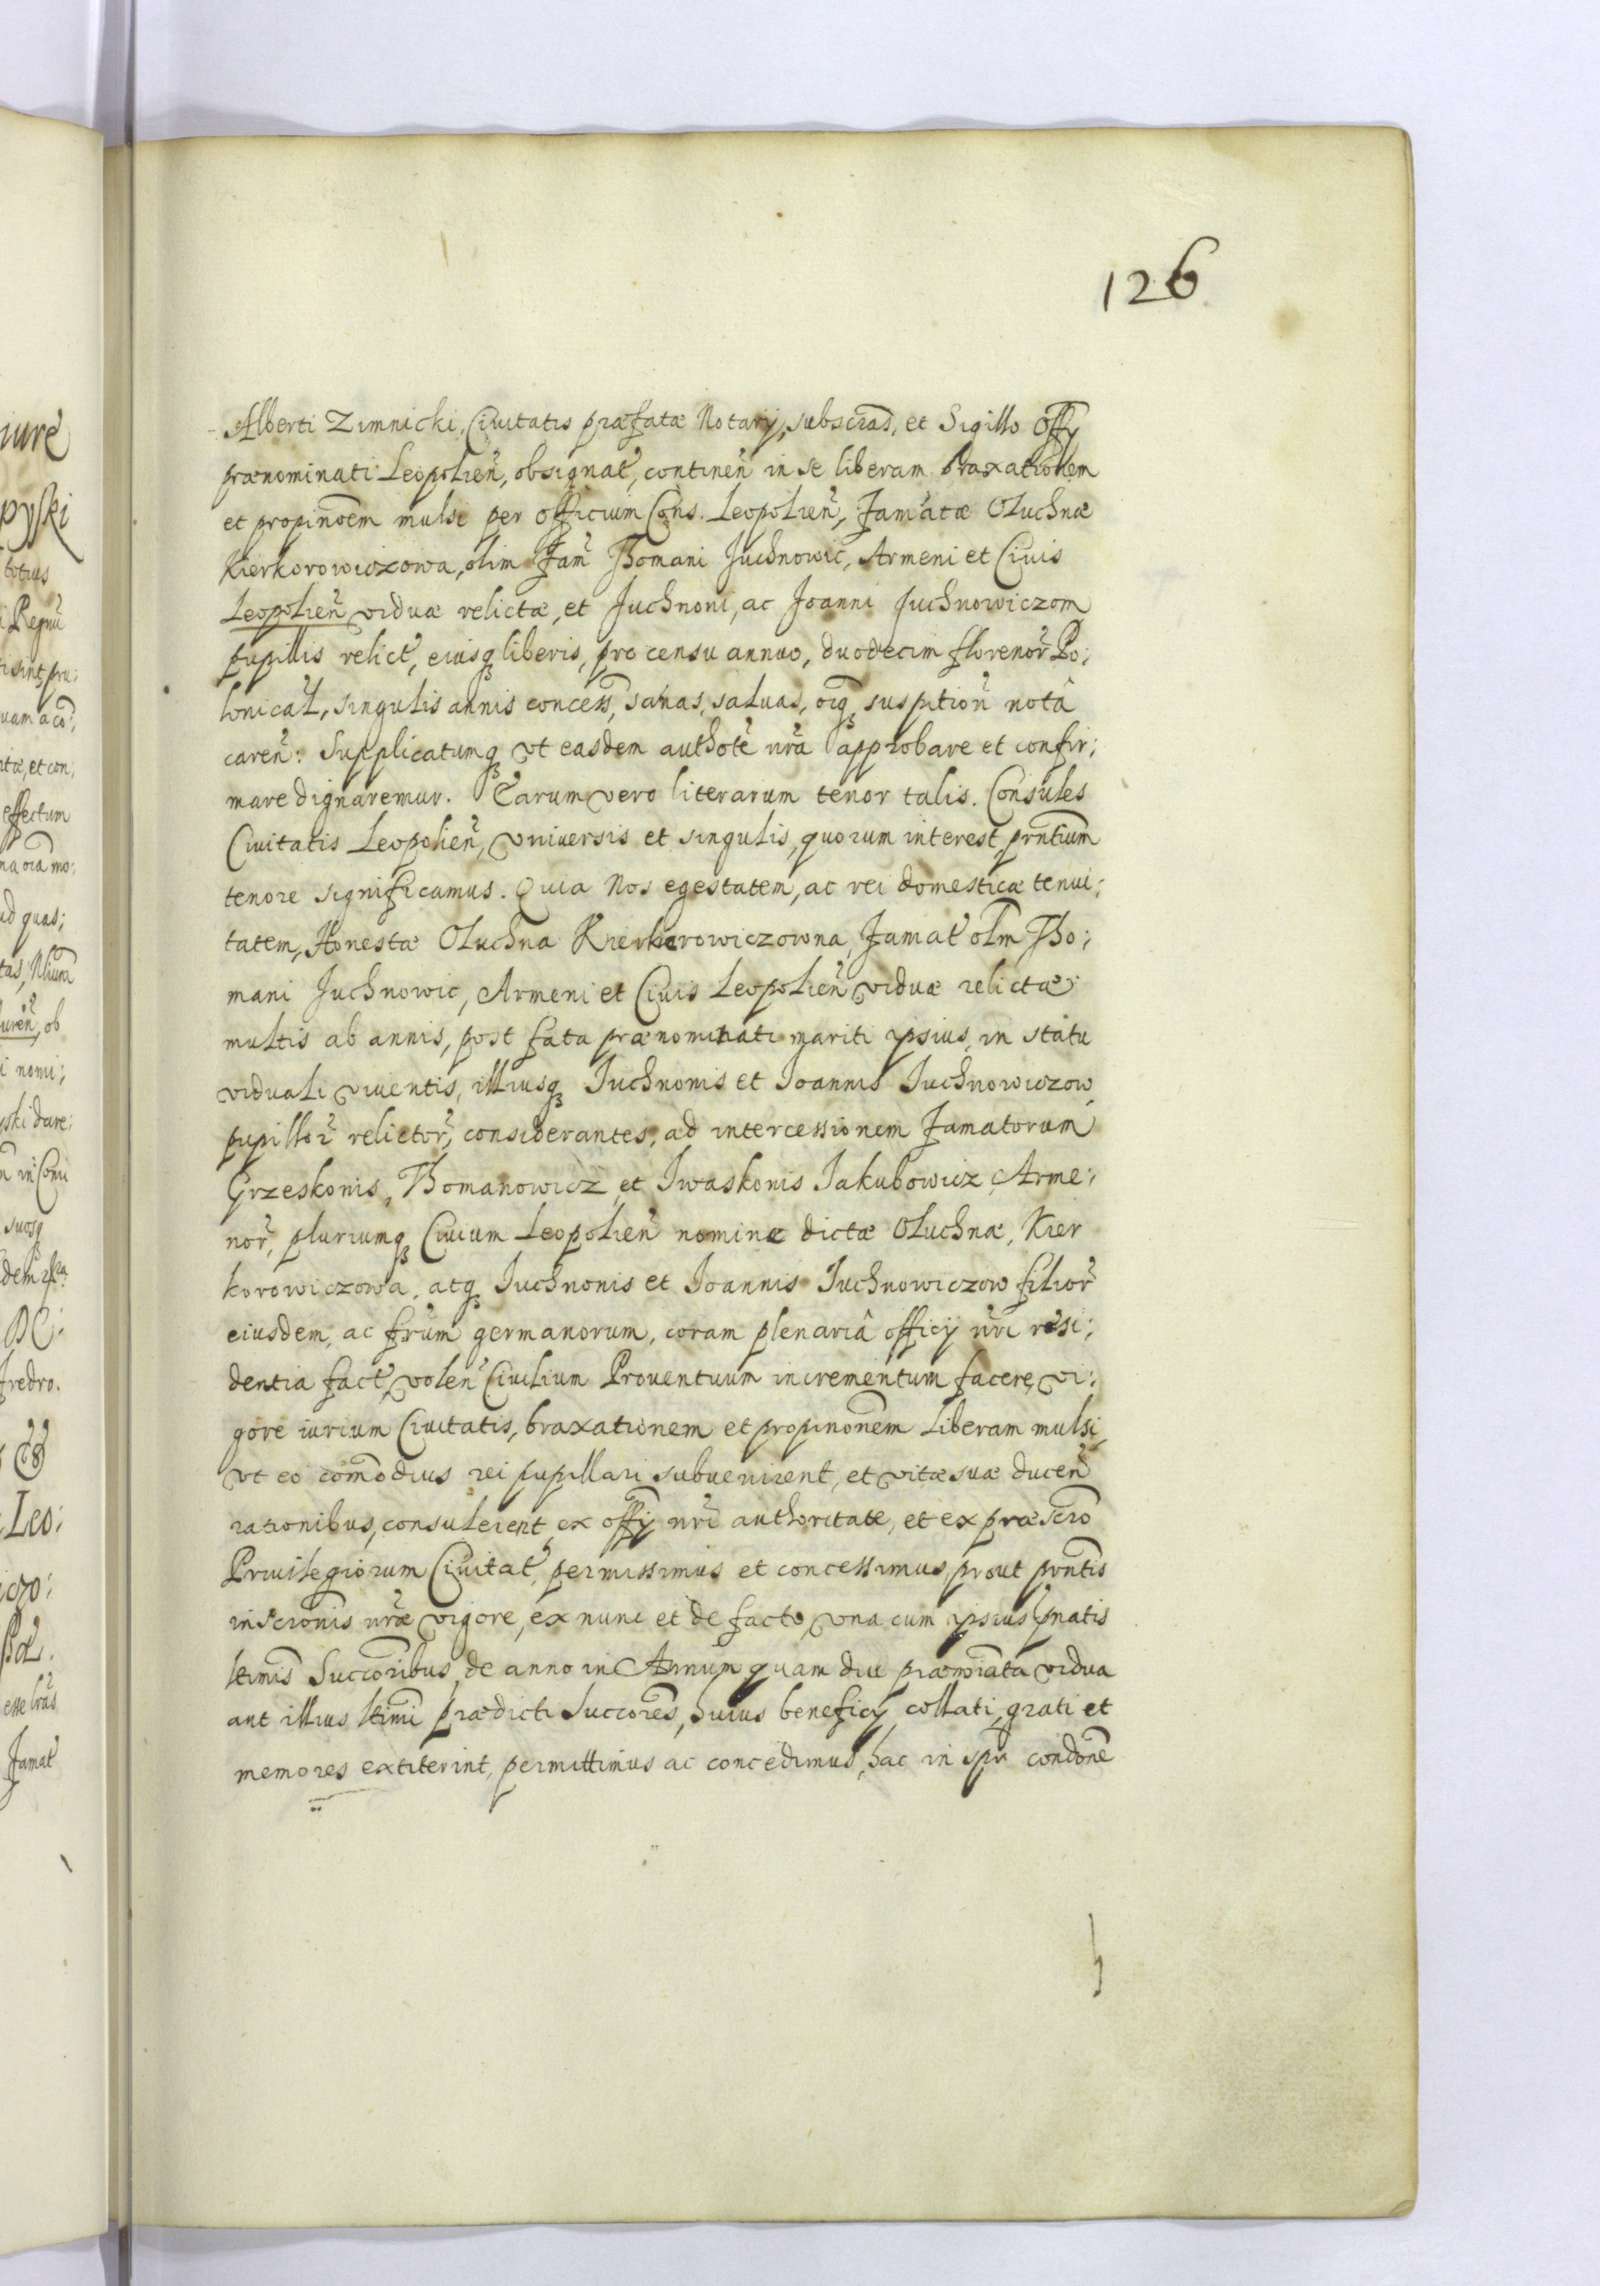 126
Alberti Zimnicki, Ciuitatis præfatæ Notarij, subscriãs, et Sigillo Offỹ
prænominati Leopolieñ, obsignat̃, contineñ in se liberam braxationem
et propinõem mulsi per officium Cons. Leopolieñ, Famatæ Oluchnæ
Kierkorowiczowa, olim Fam̃ Thomani Juchnowic, Armeni et Ciuis
Leopolieñ viduæ relictæ, et Juchnoni, ac Joanni Juchnowiczom
pupillis relict̃, eiusq liberis, pro censu annuo, duodecim florenor̃ Po;
lonical, singulis annis concess, sanas, saluas, oiq suspitioñ notâ
careñ: Supplicatumq vt easdem authotẽ nrã approbare et confir;
mare dignaremur. Earum vero literarum tenor talis. Consules
Ciuitatis Leopolieñ, vniuersis et singulis, quorum interest, prñtium
tenore significamus. Quia Nos egestatem, ac rei domesticæ tenui;
tatem, Honestæ Oluchna Kierkorowiczowna, Famat̃ olm̃ Tho;
mani Juchnowic, Armeni et Ciuis Leopolieñ viduæ relictæ
multis ab annis, post fata prænominati mariti ipsius, in statu
viduali viuentis, illiusq Iuchnonis et Ioannis Iuchnowiczow
pupillor̃ relictor̃, considerantes, ad intercessionem Famatorum
Grzeskonis, Thomanowicz et Iwaskonis Iakubowicz Arme;
nor̃, pluriumq Ciuium Leopolieñ nomine dictæ Oluchnæ, Kier
korowiczowa, atq Iuchnonis et Ioannis Iuchnowiczow filior̃
eiusdem, ac frũm germanorum, coram plenariâ officij nrĩ resi;
dentia fact̃, voleñ Ciuilium Prouentuum incrementum facere, vi;
gore iurium Ciuitatis, braxationem et propinõnem liberam mulsi,
vt eo com̃odius rei pupillari subuenirent, et vitæ suæ duceñ
rationibus, consulerent, ex offỹ nrĩ authoritate, et ex præscrõ
Priuilegiorum Ciuitat̃, permissimus et concessimus, prout prñtis
inscrõnis nræ̃ vigore, ex nunc et de facto, vna cum ipsius pñatis
ltĩmis Succõribus, de anno in Annum quam diu præmiãta vidua
aut illius ltĩmi prædicti Succores̃, huius beneficij collati, grati et
memores extiterint, permittimus ac concedimus, hac in spũ condõne